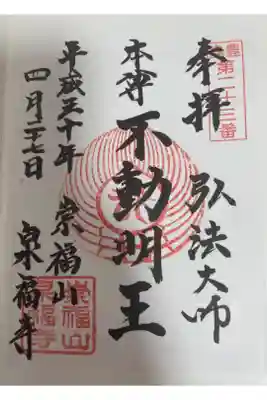 豊
第二十三番
奉拝 弘法大師
本尊 不動明王
平成三十年 崇福山
四月二七日 泉福寺
崇福山
泉福寺